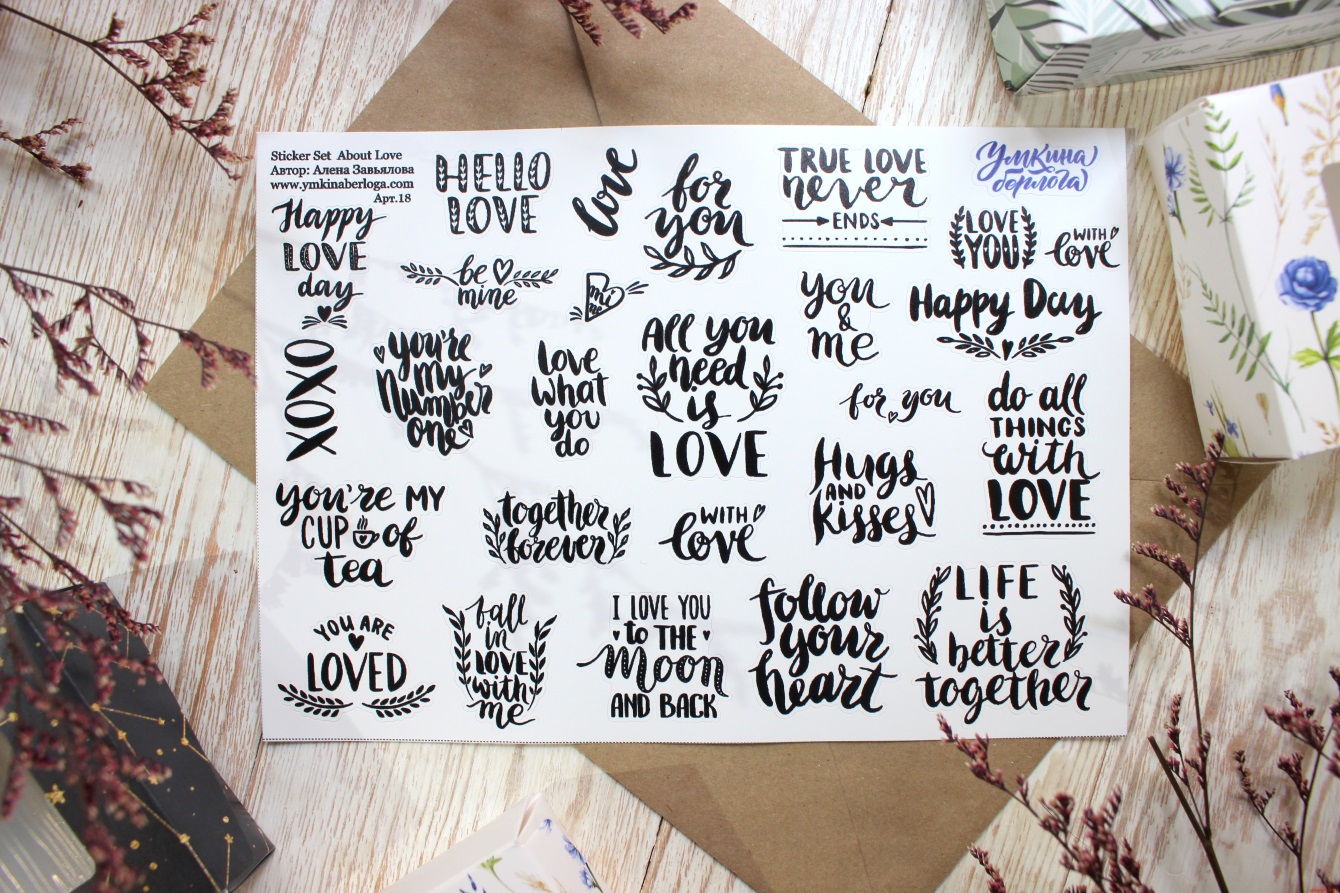 Sticker Set About Love
Автор: Алена Завьялова
www.ymkinaberloga.com
Арт.18
Happy
LOVE
day
HELLO
LOVE
love
for
you
TRUE LOVE
never
ENDS
Умкина
берлога
LOVE
YOU
WITH
love
be
mine
you
&
me
Happy Day
XOXO
you're
my
Number
one
love
what
you
do
All you
need
is
LOVE
for you
do all
THINGS
with
LOVE
Hugs
AND
kisses
you're MY
CUP of
tea
together
forever
WITH
love
YOU ARE
LOVED
fall
in
LOVE
with
me
I LOVE YOU
to THE
Moon
AND BACK
follow
your
heart
LIFE
is
better
together